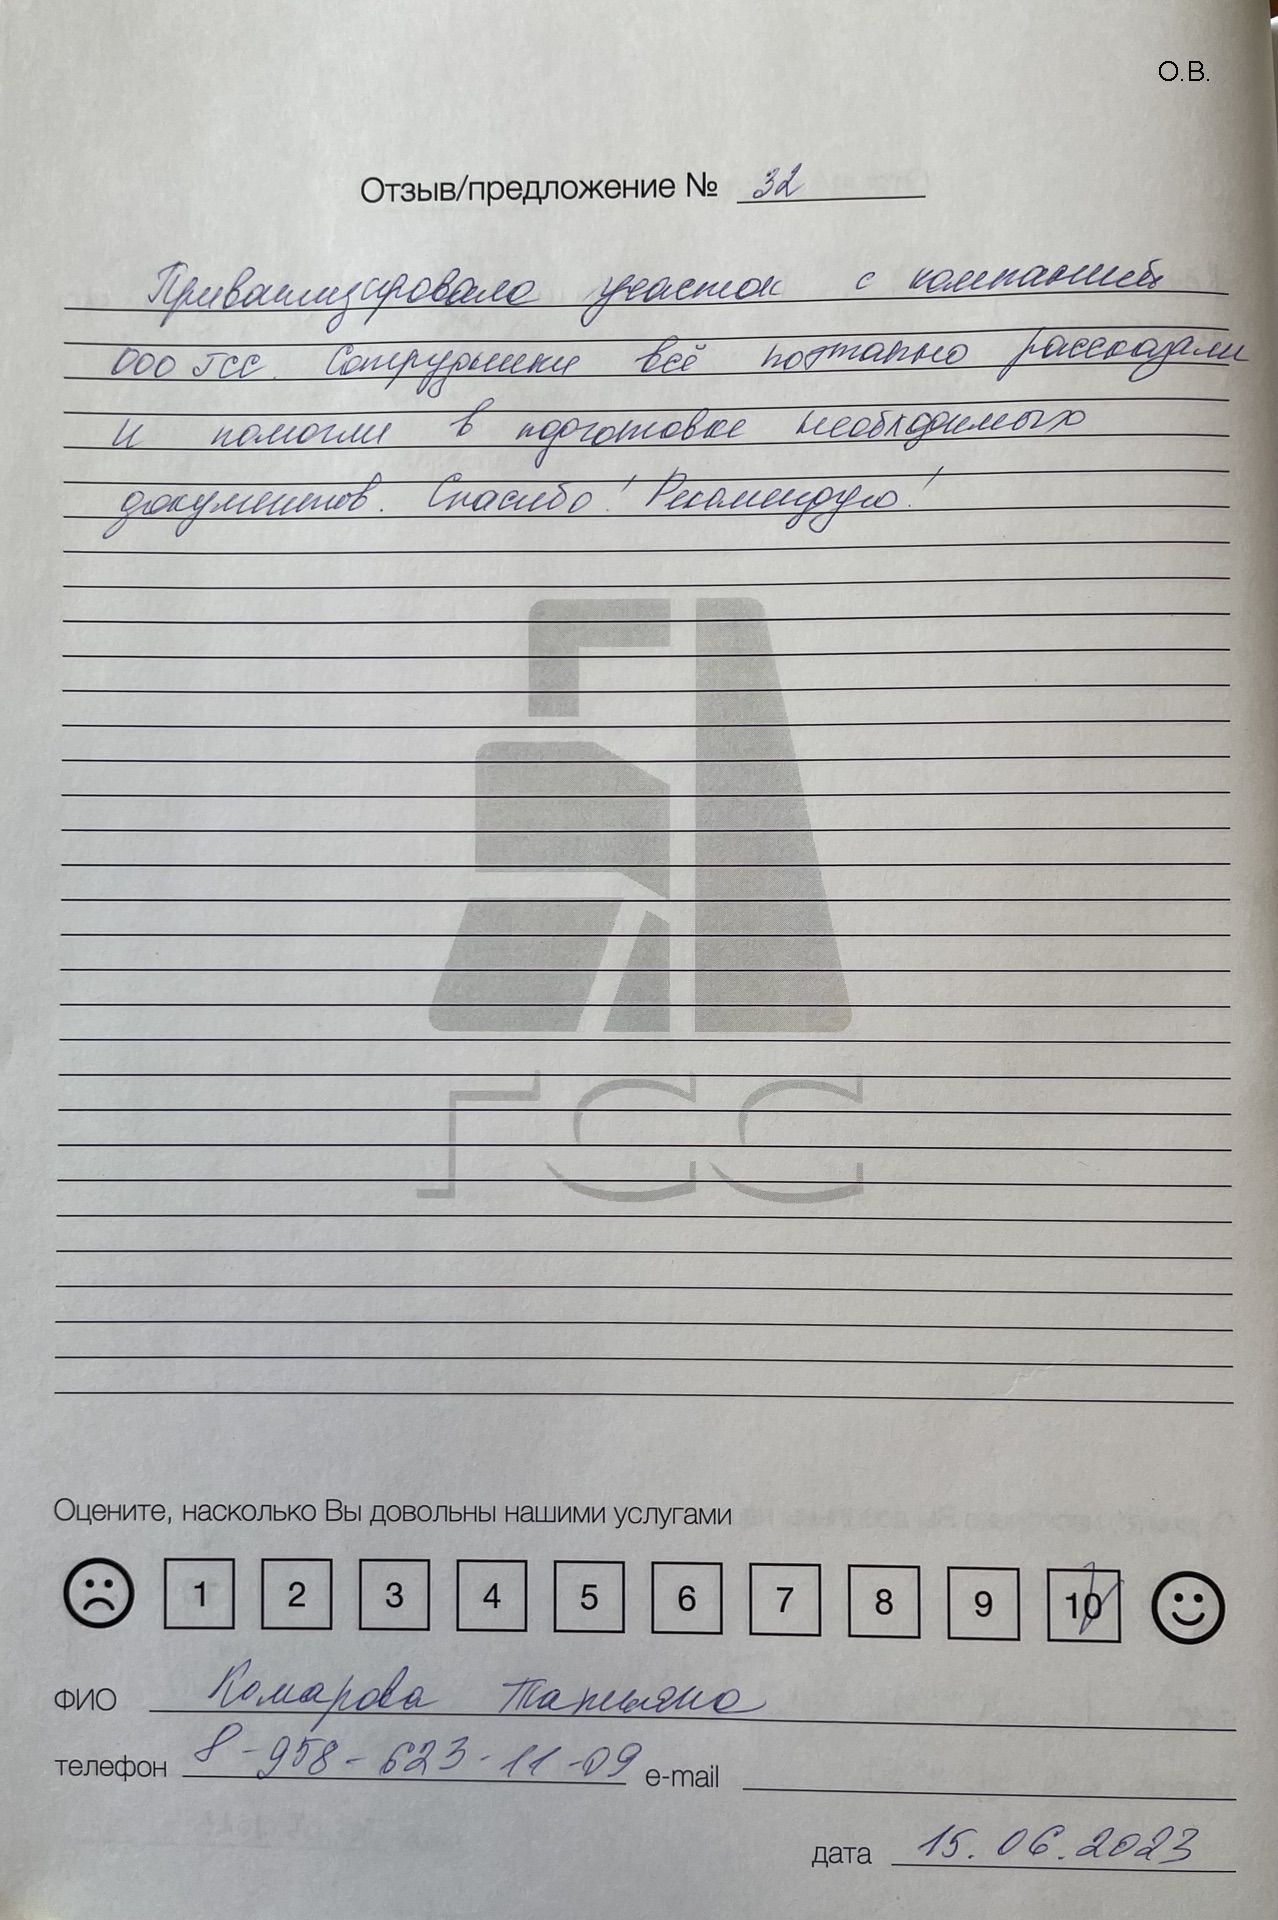 О.В.
Отзыв/предложение № 32
Приватизировала участок с компанией
ООО ГСС. Сотрудники всё поэтапно рассказали
и помогли в подготовке необходимых
документов. Спасибо! Рекомендую!
ГСС
Оцените, насколько Вы довольны нашими услугами
1 2 3 4 5 6 7 8 9 10
ФИО Комарова Татьяна
телефон 8-958-623-11-09 e-mail
дата 15.06.2023